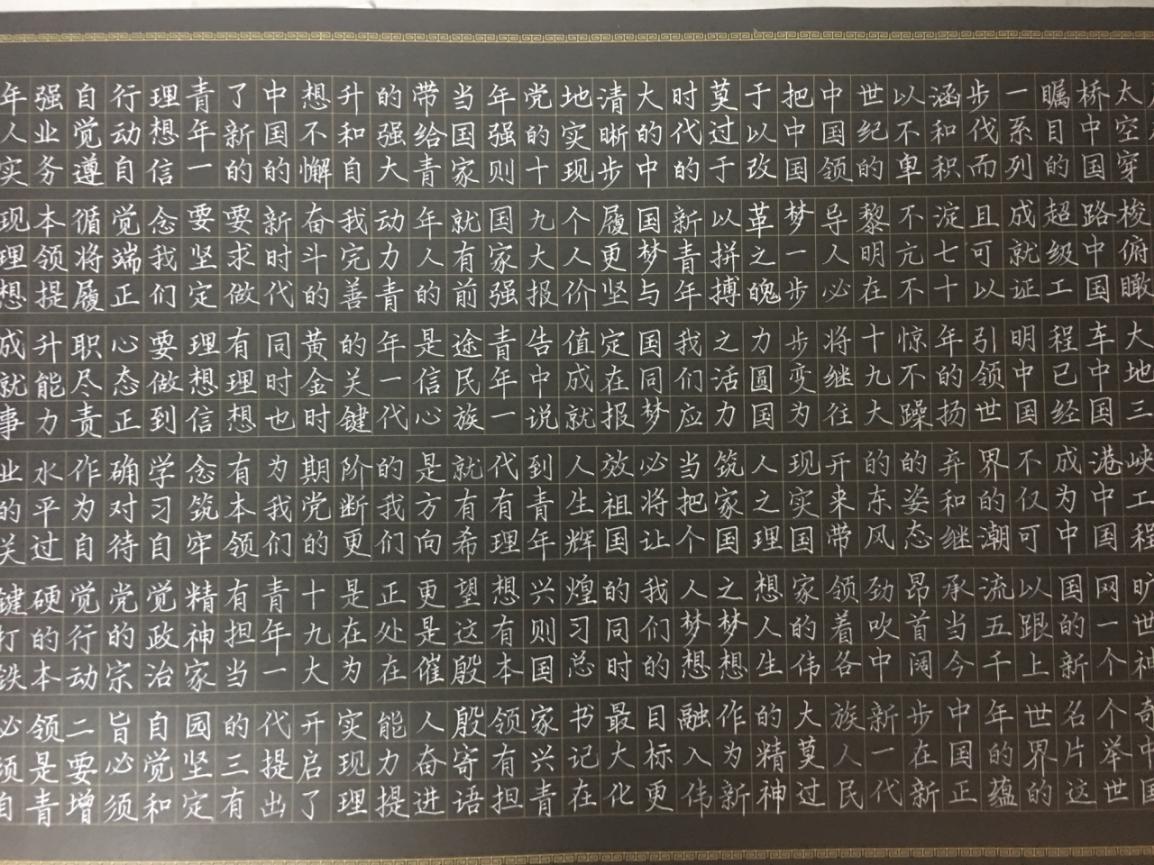 太空穿梭俯瞰大地三峡工程旷世神奇中国
桥中国路中国车中国港中国网一个个举世
瞩目的超级工程已经成为中国的新名片这
一系列成就证明中国不仅可以跟上世界的
步伐而且可以引领世界的潮流五千年的蕴
涵和积淀七十年的扬弃和继承当今中国正
以不卑不亢不惊不躁的姿态昂首阔步在新
世纪的黎明在十九大的东风劲吹中新一代
中国领导人必将继往开来带领着各族人民
把中国梦一步步变为现实国家的伟大莫过
于以改革之魄力圆国人之理想人生的精神
莫过于以拼搏之活力筑家国之梦想作为新
时代的新青年我们应当把个人梦想融入伟
大的中国梦与国同梦必将让我们的目标更
清晰步履更坚定在报效祖国的同时最大化
地实现个人价值成就人生辉煌习总书记在
党的十九大报告中说到青年兴则国家兴青
年强则国家强青年一代有理想有本领有担
当国家就有前途民族就有希望这殷殷寄语
带给青年人的是信心是方向更是催人奋进
的强大动力青年一代的我们正处在能力提
升和自我完善的关键阶断更是为实现理想
想不懈奋斗的黄金时期党的十九大开启了
中国的新时代同时也为我们青年一代提出
了新的要求做有理想有本领有担当的三有
青年一要坚定理想信念筑牢精神家园坚定
理想信念我们要做到学习自觉政治自觉和
行动自觉端正心态正确对待党的宗旨必须
自觉遵循将履职尽责作为自觉行动二要增
强业务本领提升能力水平过硬的本领是青
年人实现理想成就事业的关键打铁必须自